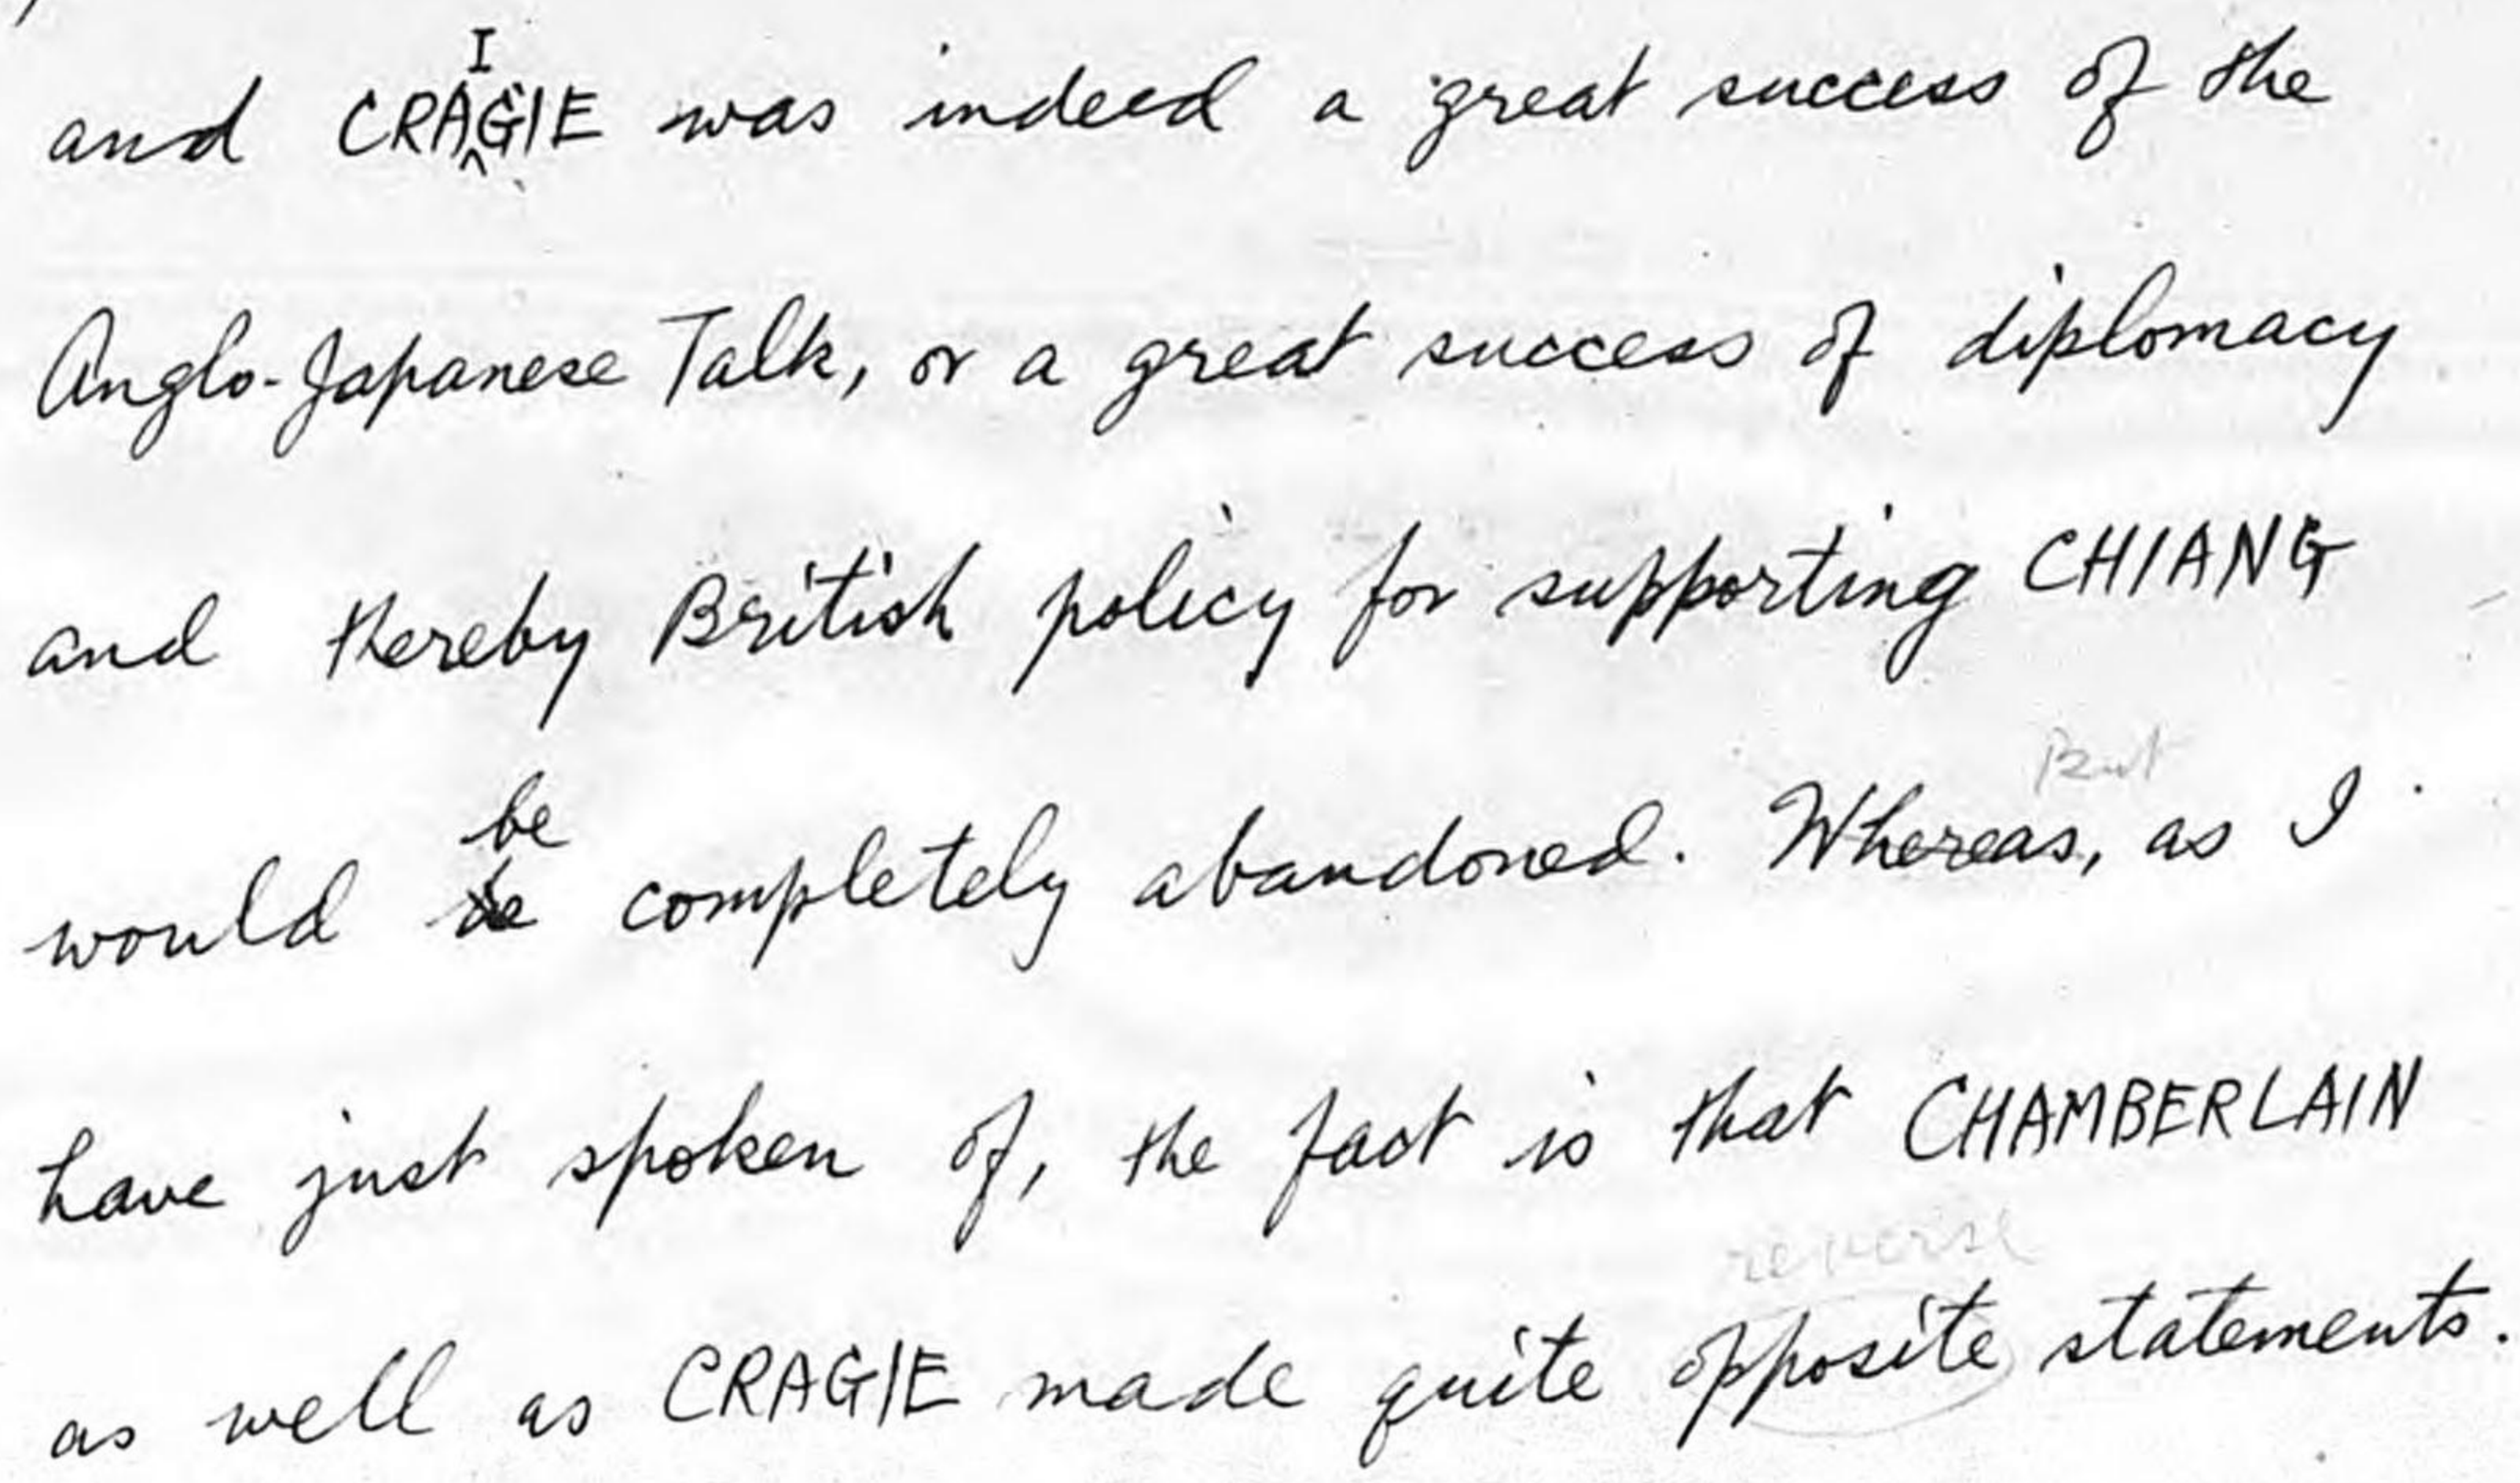 and CRAIGIE was indeed a great success of the
Anglo-Japanese Talk, or a great success of diplomacy
and thereby British policy for supporting CHIANG
But
would be completely abandoned. Whereas, as I
have just spoken of, the fact is that CHAMBERLAIN
reverse
as well as CRAGIE made quite opposite statements.